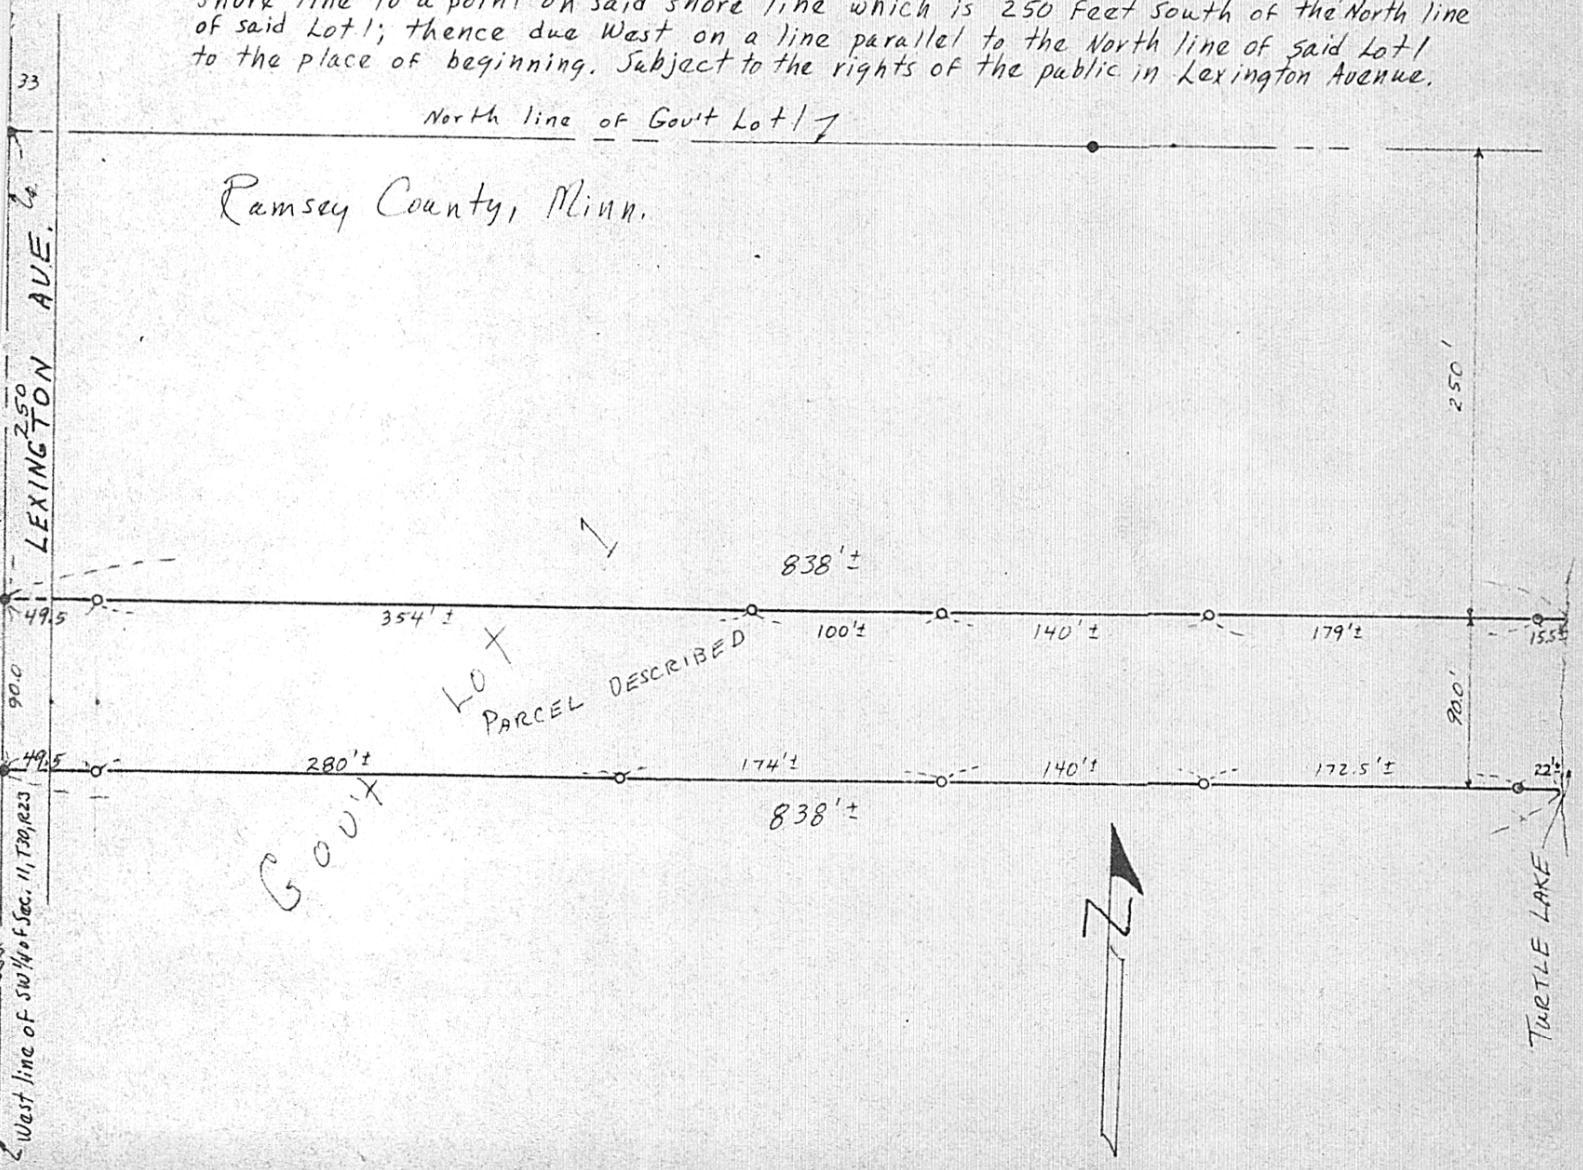 shore line to a point on said shore line which is 250 feet South of the North line
of said Lot 1; thence due West on a line parallel to the North line of said Lot 1
to the place of beginning. Subject to the rights of the public in Lexington Avenue.
33
North line of Gov't Lot 1
Ramsey County, Minn.
LEXINGTON AVE.
250
250'
1
838'±
49.5
354'±
100'±
140'±
179'±
15.5'±
LOT
PARCEL DESCRIBED
90.0
90.0'
49.5
280'±
174'±
140'±
172.5'±
22'±
838'±
GOV'T
N
TURTLE LAKE
West line of SW 1/4 of Sec. 11, T30, R23